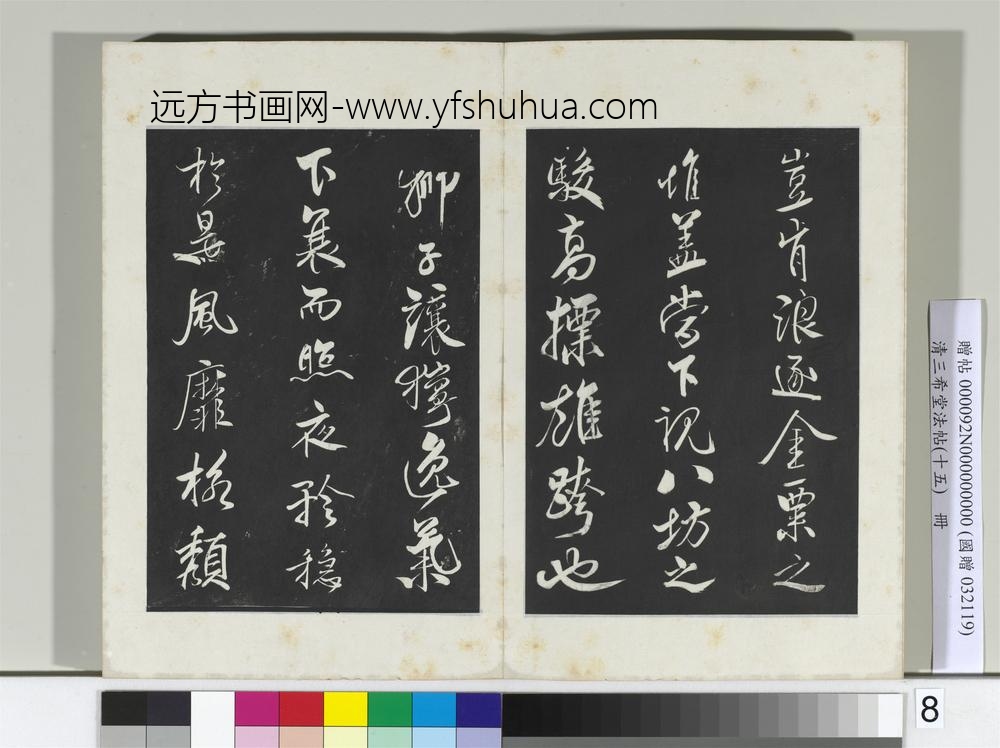 远方书画网-www.yfshuhua.com
豈肯浪逐金粟之
堆盖當下視八坊之
駿高摽雄跨也
獅子讓獰逸氣
下衰而照夜矜穏
於是風靡格頹
贈帖 000092N000000000 (國贈 032119)
清三希堂法帖(十五) 冊
8